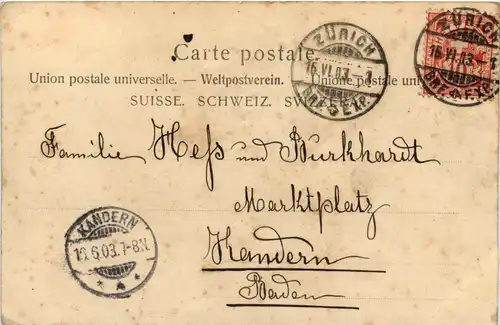 Carte postale.
Union postale universelle. — Weltpostverein. — Unione postale uni
SUISSE. SCHWEIZ. SVIZZERA.
ZÜRICH
16.VI.03.–1
BRF. EXP.
ZÜRICH
16.VI.03.–1
BRF. EXP.
Familie Hess und Burkhardt
Marktplatz
Kandern
Baden
KANDERN
16.6.03.7-8N.